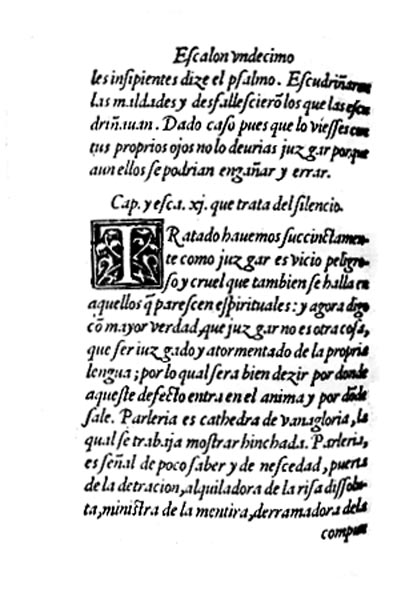 Escalon vndecimo
les insipientes dize el psalmo. Escudriñaron
las maldades y desfallescierõ los que las escu
driñauan. Dado caso pues que lo viesses con
tus proprios ojos no lo deurias juzgar porque
aun ellos se podrian engañar y errar.
Cap. y esca. xj. que trata del silencio.
TRatado hauemos succinctamen-
te como juzgar es vicio peligro-
so y cruel que tambien se halla en
aquellos q̃ parescen espirituales: y agora digo
cõ mayor verdad, que juzgar no es otra cosa,
que ser iuzgado y atormentado de la propria
lengua; por lo qual sera bien dezir por donde
aqueste defecto entra en el anima y por dõde
sale. Parleria es cathedra de vanagloria, la
qual se trabaja mostrar hinchada. Parleria,
es señal de poco saber y de nescedad, puerta
de la detracion, alquiladora de la risa dissolu-
ta, ministra de la mentira, derramadora dela
compun